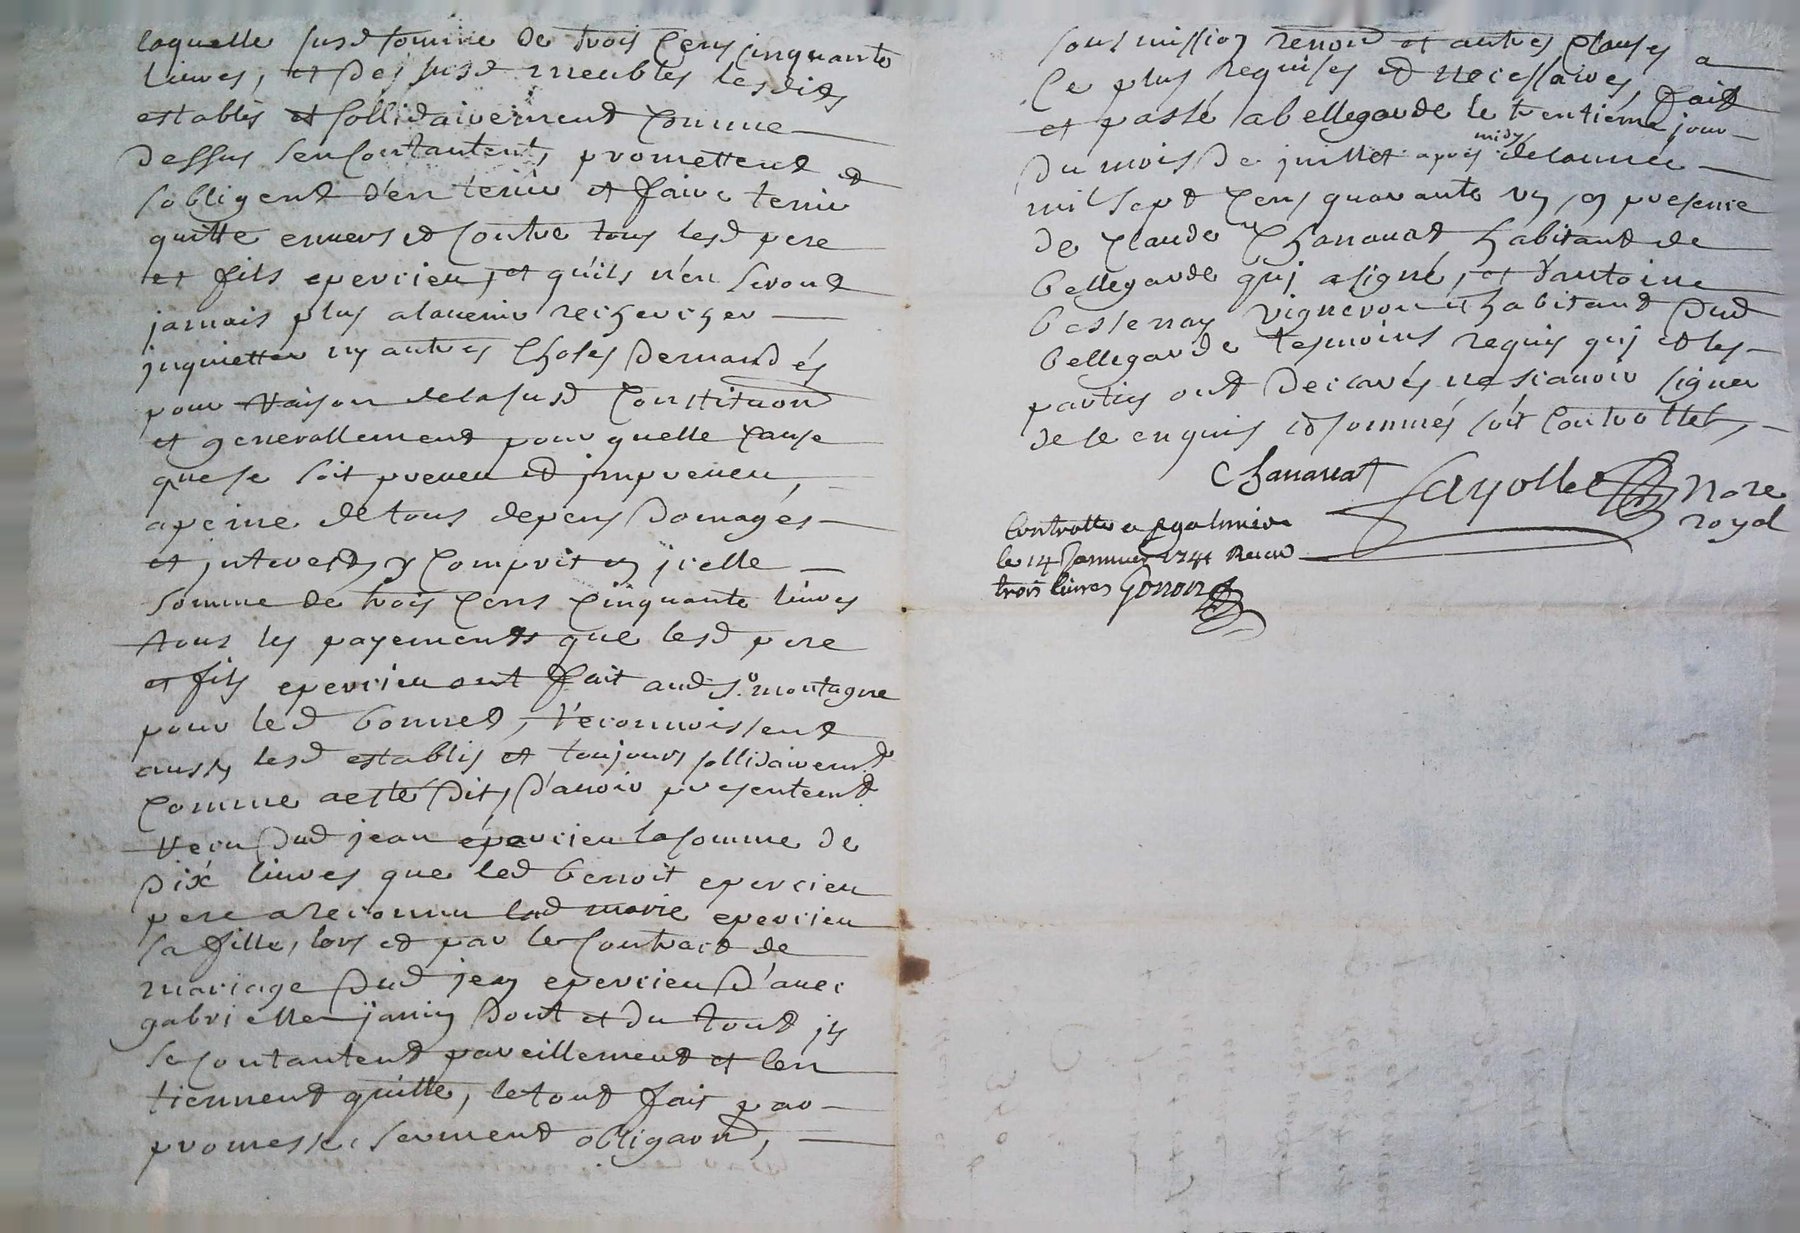 laquelle susd somme de trois cens cinquante
livres, et des susd meubles lesdits
establis et sollidairement comme
dessus sencontantent, promettent et
sobligent d'en tenir et faire tenir
quitte envers et contre tous lesd pere
et fils epercieu, et qu'ils n'en seront
jamais plus alauenir rechercher
jnquietter ny autres choses demandés
pour raison delasusd constituon
et generallement pour quelle cause
quese soit preueu et jmpreueu,
apeine detous depens domages
et jnterests y comprit en jcelle
somme de trois cens cinquante liures
tous les payements que lesd pere
et fils epercieu ont fait aud sr montagne
pour led bonnet, reconnoissent
aussy lesd establis et toujours sollidairemt
comme aeste dit, d'auoir presentemt
recu dud jean epercieu lasomme de
dix liures que led benoit epercieu
pere areconnu lad marie epercieu
sa fille, lors et par le contract de
mariage dud jean epercieu d'auec
gabrielle janin dont et du tout jls
se contantent pareillement et len
tiennent quitte, letout fait par
promesse serment obligaon,
soumission renon et autres clauses a
ce plus requises et necessaires, fait
et passé abellegarde le trentiéme jour
du mois de juillet apres midy delannée
mil sept cens quarante un en presence
de claude chanauat habitant de
bellegarde qui asigné, et d'antoine
vigneron habitant dud
bellegarde tesmoins requis qui et les
parties ont declarés ne scauoir signer
de ce enquis et sommés soit controllet,
Chanauat Jayollet Nore
royal
Controllé a sgalmier
le 14 1741 Recu
trois liures Gonon